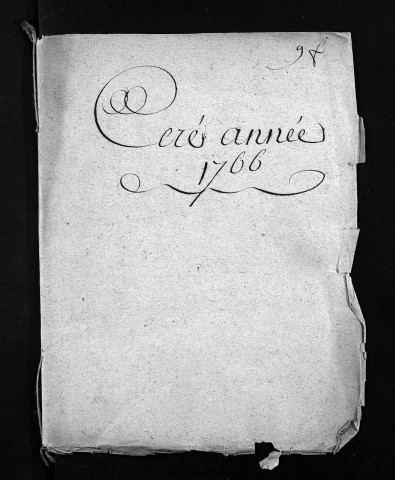 9 f
Ceré année
1766